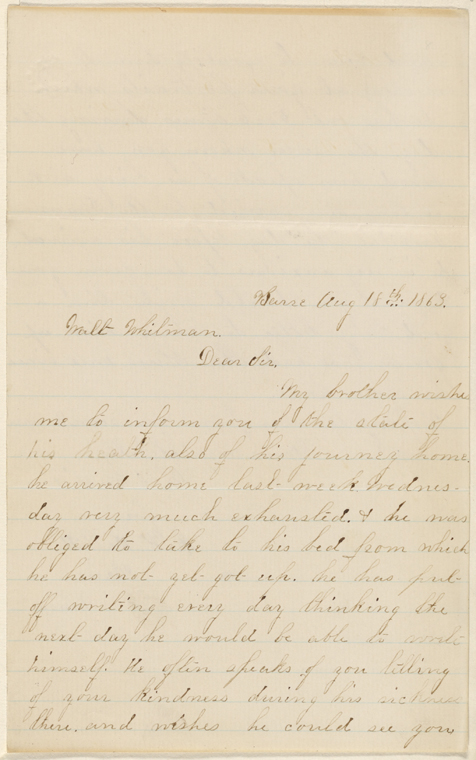 Barre Aug 18th: 1863.
Walt Whitman.
Dear Sir,
My brother wishes
me to inform you of the state of
his health, also of his journey home.
he arrived home last week Wednes-
day very much exhausted. & he was
obliged to take to his bed from which
he has not yet got up. he has put
off writing every day thinking the
next day he would be able to write
himself. He often speaks of you telling
of your kindness during his sickness
there. and wishes he could see you